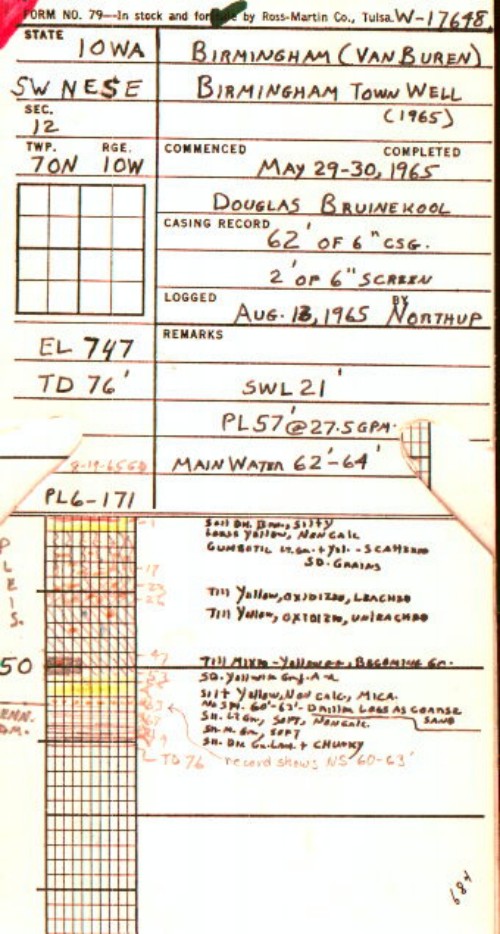 FORM NO. 79—In stock and for by Ross-Martin Co., Tulsa. W-17648
STATE
IOWA
BIRMINGHAM (VAN BUREN)
SW NE SE
BIRMINGHAM TOWN WELL
(1965)
SEC.
12
TWP. RGE.
70N 10W
COMMENCED COMPLETED
MAY 29-30, 1965
DOUGLAS BRUINEKOOL
CASING RECORD
62' OF 6" CSG.
2' OF 6" SCREEN
LOGGED
AUG. 13, 1965 BY NORTHUP
REMARKS
EL 747
TD 76'
SWL 21'
PL 57' @ 27.5 GPM.
MAIN WATER 62'-64'
PL6-171
SOIL DK. BRN., SILTY
LOESS YELLOW, NON CALC
GUMBOTIL LT. GN. + YEL. - SCATTERED
SD. GRAINS
TILL YELLOW, OXIDIZED, LEACHED
TILL YELLOW, OXIDIZED, UNLEACHED
PLEIS.
50
TILL MIXED - YELLOW, BECOMING GN.
SILT YELLOW, NON CALC, MICA.
NO SPL. 60'-63' - DRILLER LOGS AS COARSE
SAND
SH. LT GN, SOFT, NONCALC.
SH. M. GN, SOFT
SH. DK GN. + CHUNKY
TD 76
record shows NS 60-63'
684